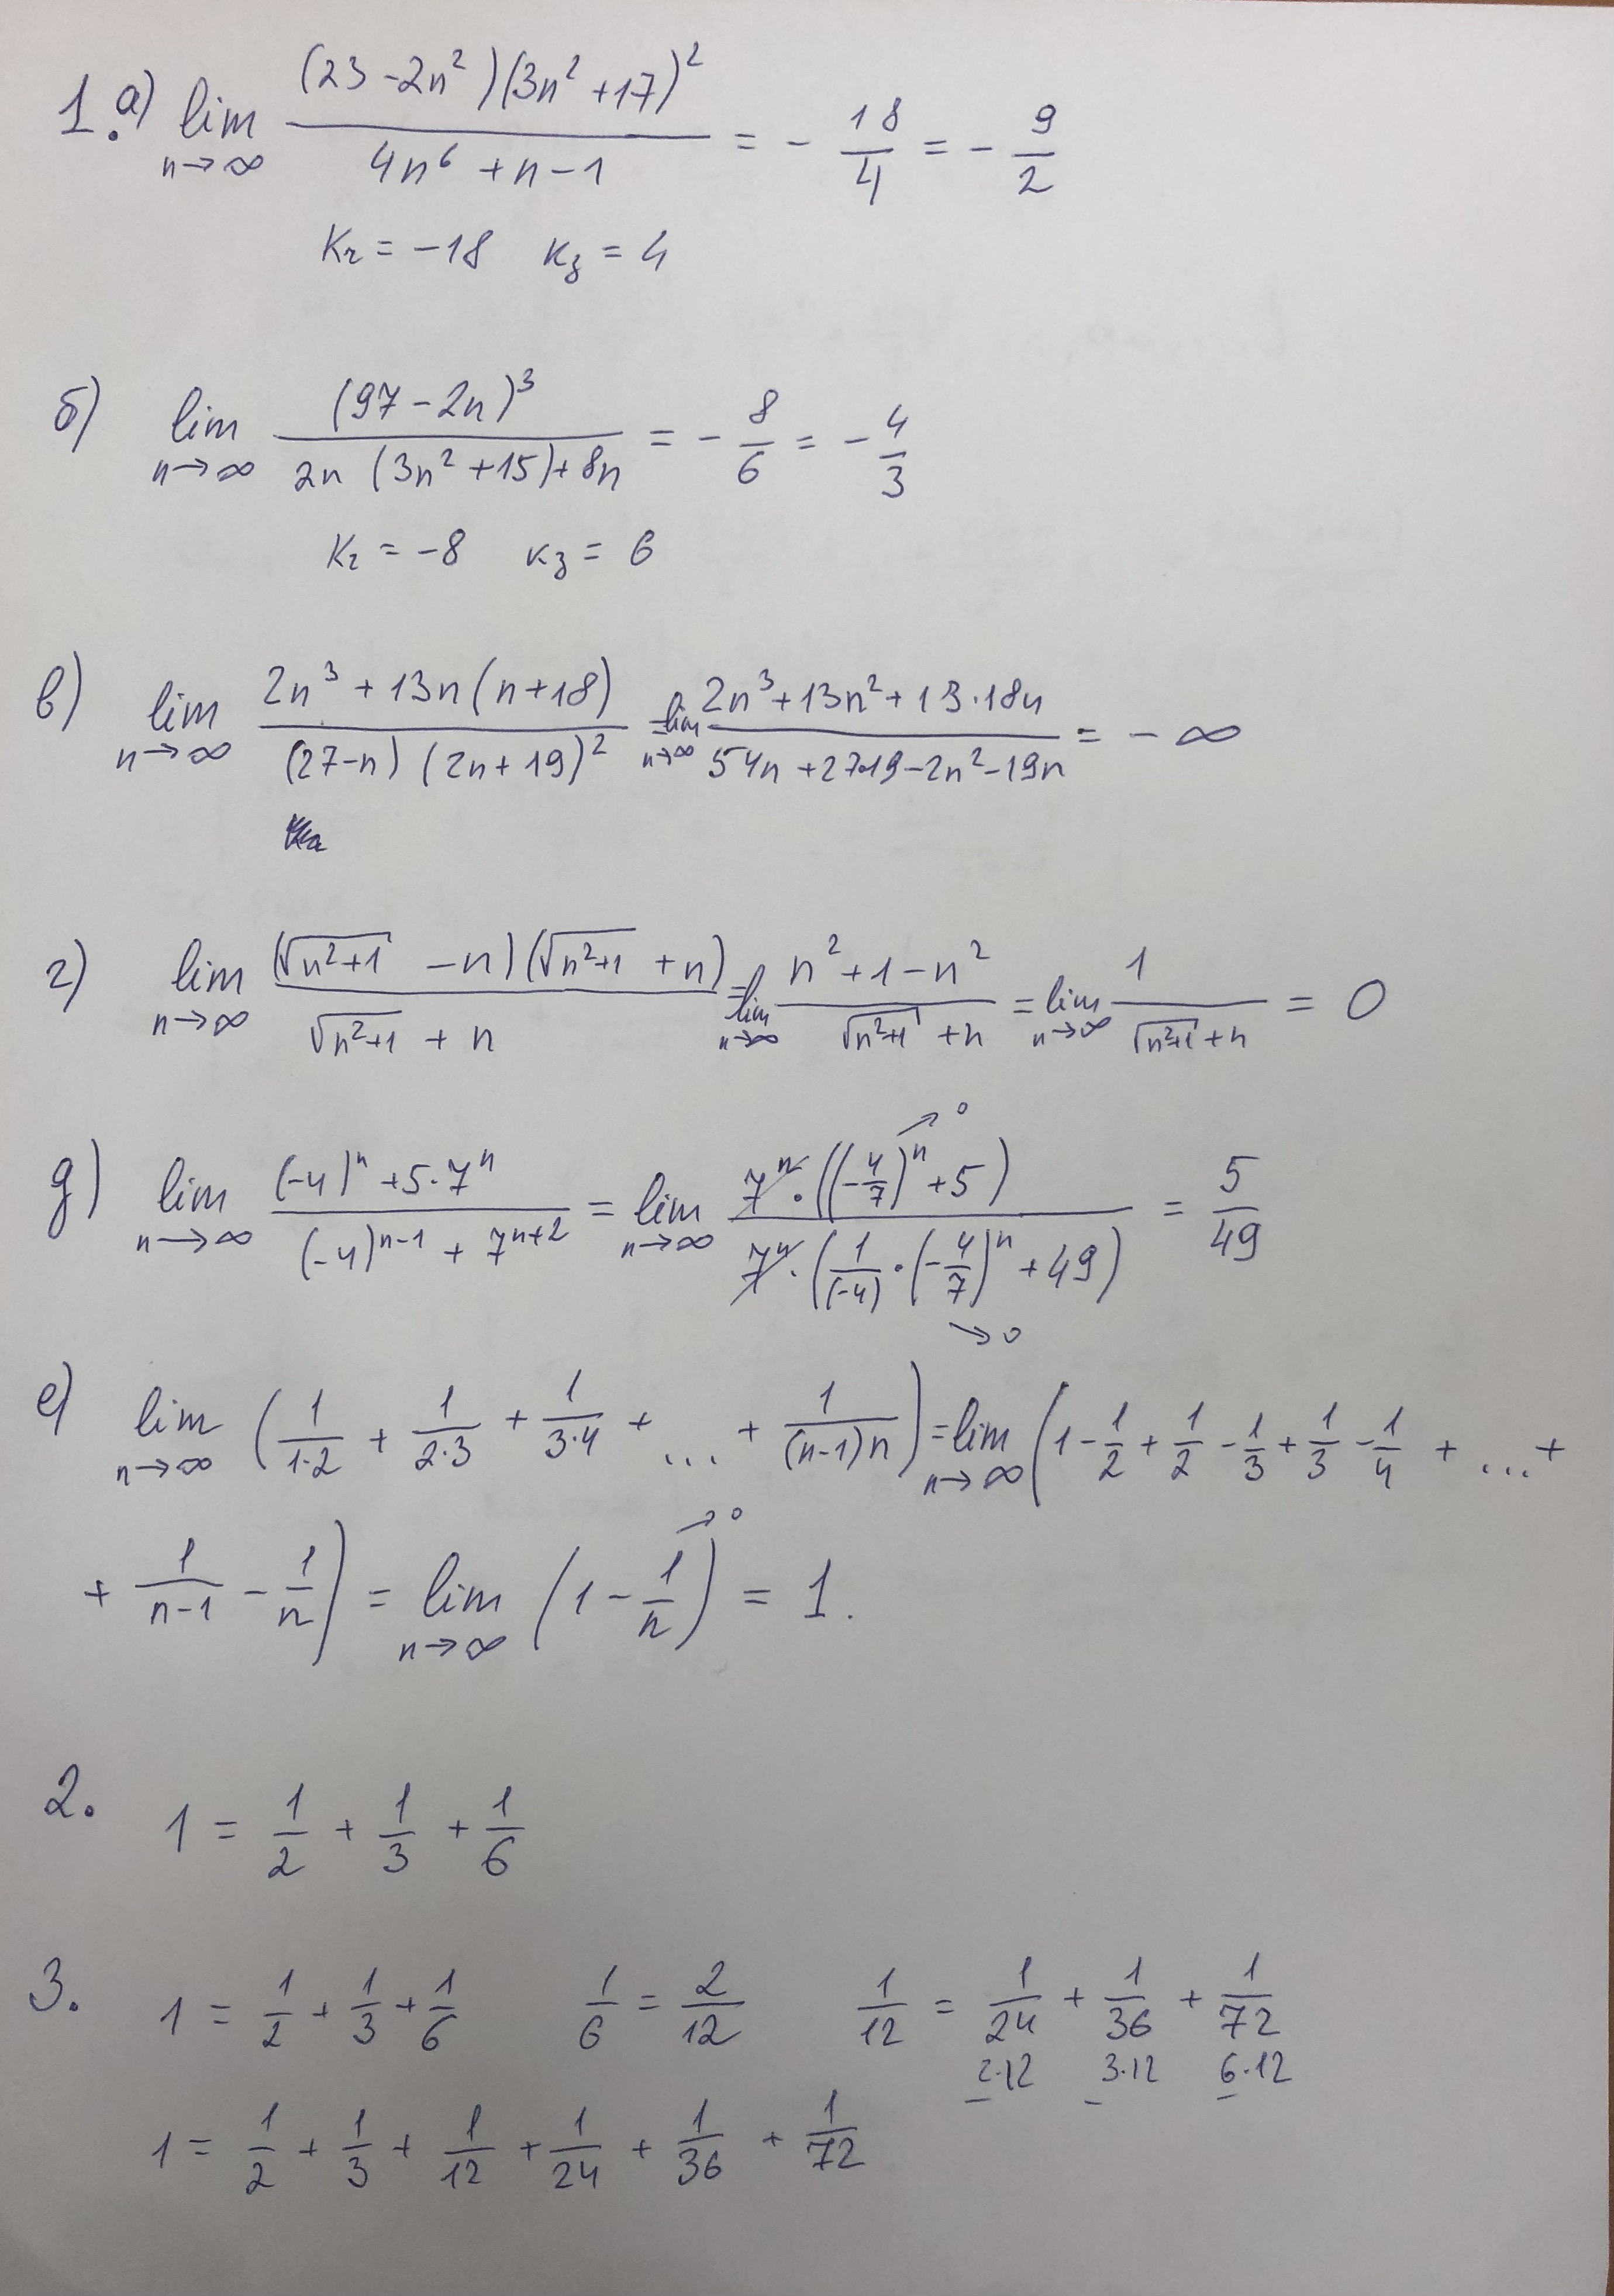 1. а) lim n→∞ (23 - 2n²)(3n² + 17)² / (4n⁶ + n - 1) = - 18/4 = - 9/2
Kг = -18 Kз = 4
б) lim n→∞ (97 - 2n)³ / (2n (3n² + 15) + 8n) = - 8/6 = - 4/3
Kг = -8 Kз = 6
в) lim n→∞ (2n³ + 13n(n + 18)) / ((27 - n) (2n + 19)²) = lim n→∞ (2n³ + 13n² + 13·18n) / (54n + 27·19 - 2n² - 19n) = - ∞
г) lim n→∞ (√(n²+1) - n)(√(n²+1) + n) / (√(n²+1) + n) = lim n→∞ (n² + 1 - n²) / (√(n²+1) + n) = lim n→∞ 1 / (√(n²+1) + n) = 0
д) lim n→∞ ((-4)ⁿ + 5·7ⁿ) / ((-4)ⁿ⁻¹ + 7ⁿ⁺²) = lim n→∞ 7ⁿ·((-4/7)ⁿ + 5) / 7ⁿ·(1/(-4)·(-4/7)ⁿ + 49) = 5/49
→0
→0
е) lim n→∞ (1/1·2 + 1/2·3 + 1/3·4 + ... + 1/(n-1)n) = lim n→∞ (1 - 1/2 + 1/2 - 1/3 + 1/3 - 1/4 + ... +
+ 1/(n-1) - 1/n) = lim n→∞ (1 - 1/n) = 1.
→0
2. 1 = 1/2 + 1/3 + 1/6
3. 1 = 1/2 + 1/3 + 1/6 1/6 = 2/12 1/12 = 1/24 + 1/36 + 1/72
2·12 3·12 6·12
1 = 1/2 + 1/3 + 1/12 + 1/24 + 1/36 + 1/72